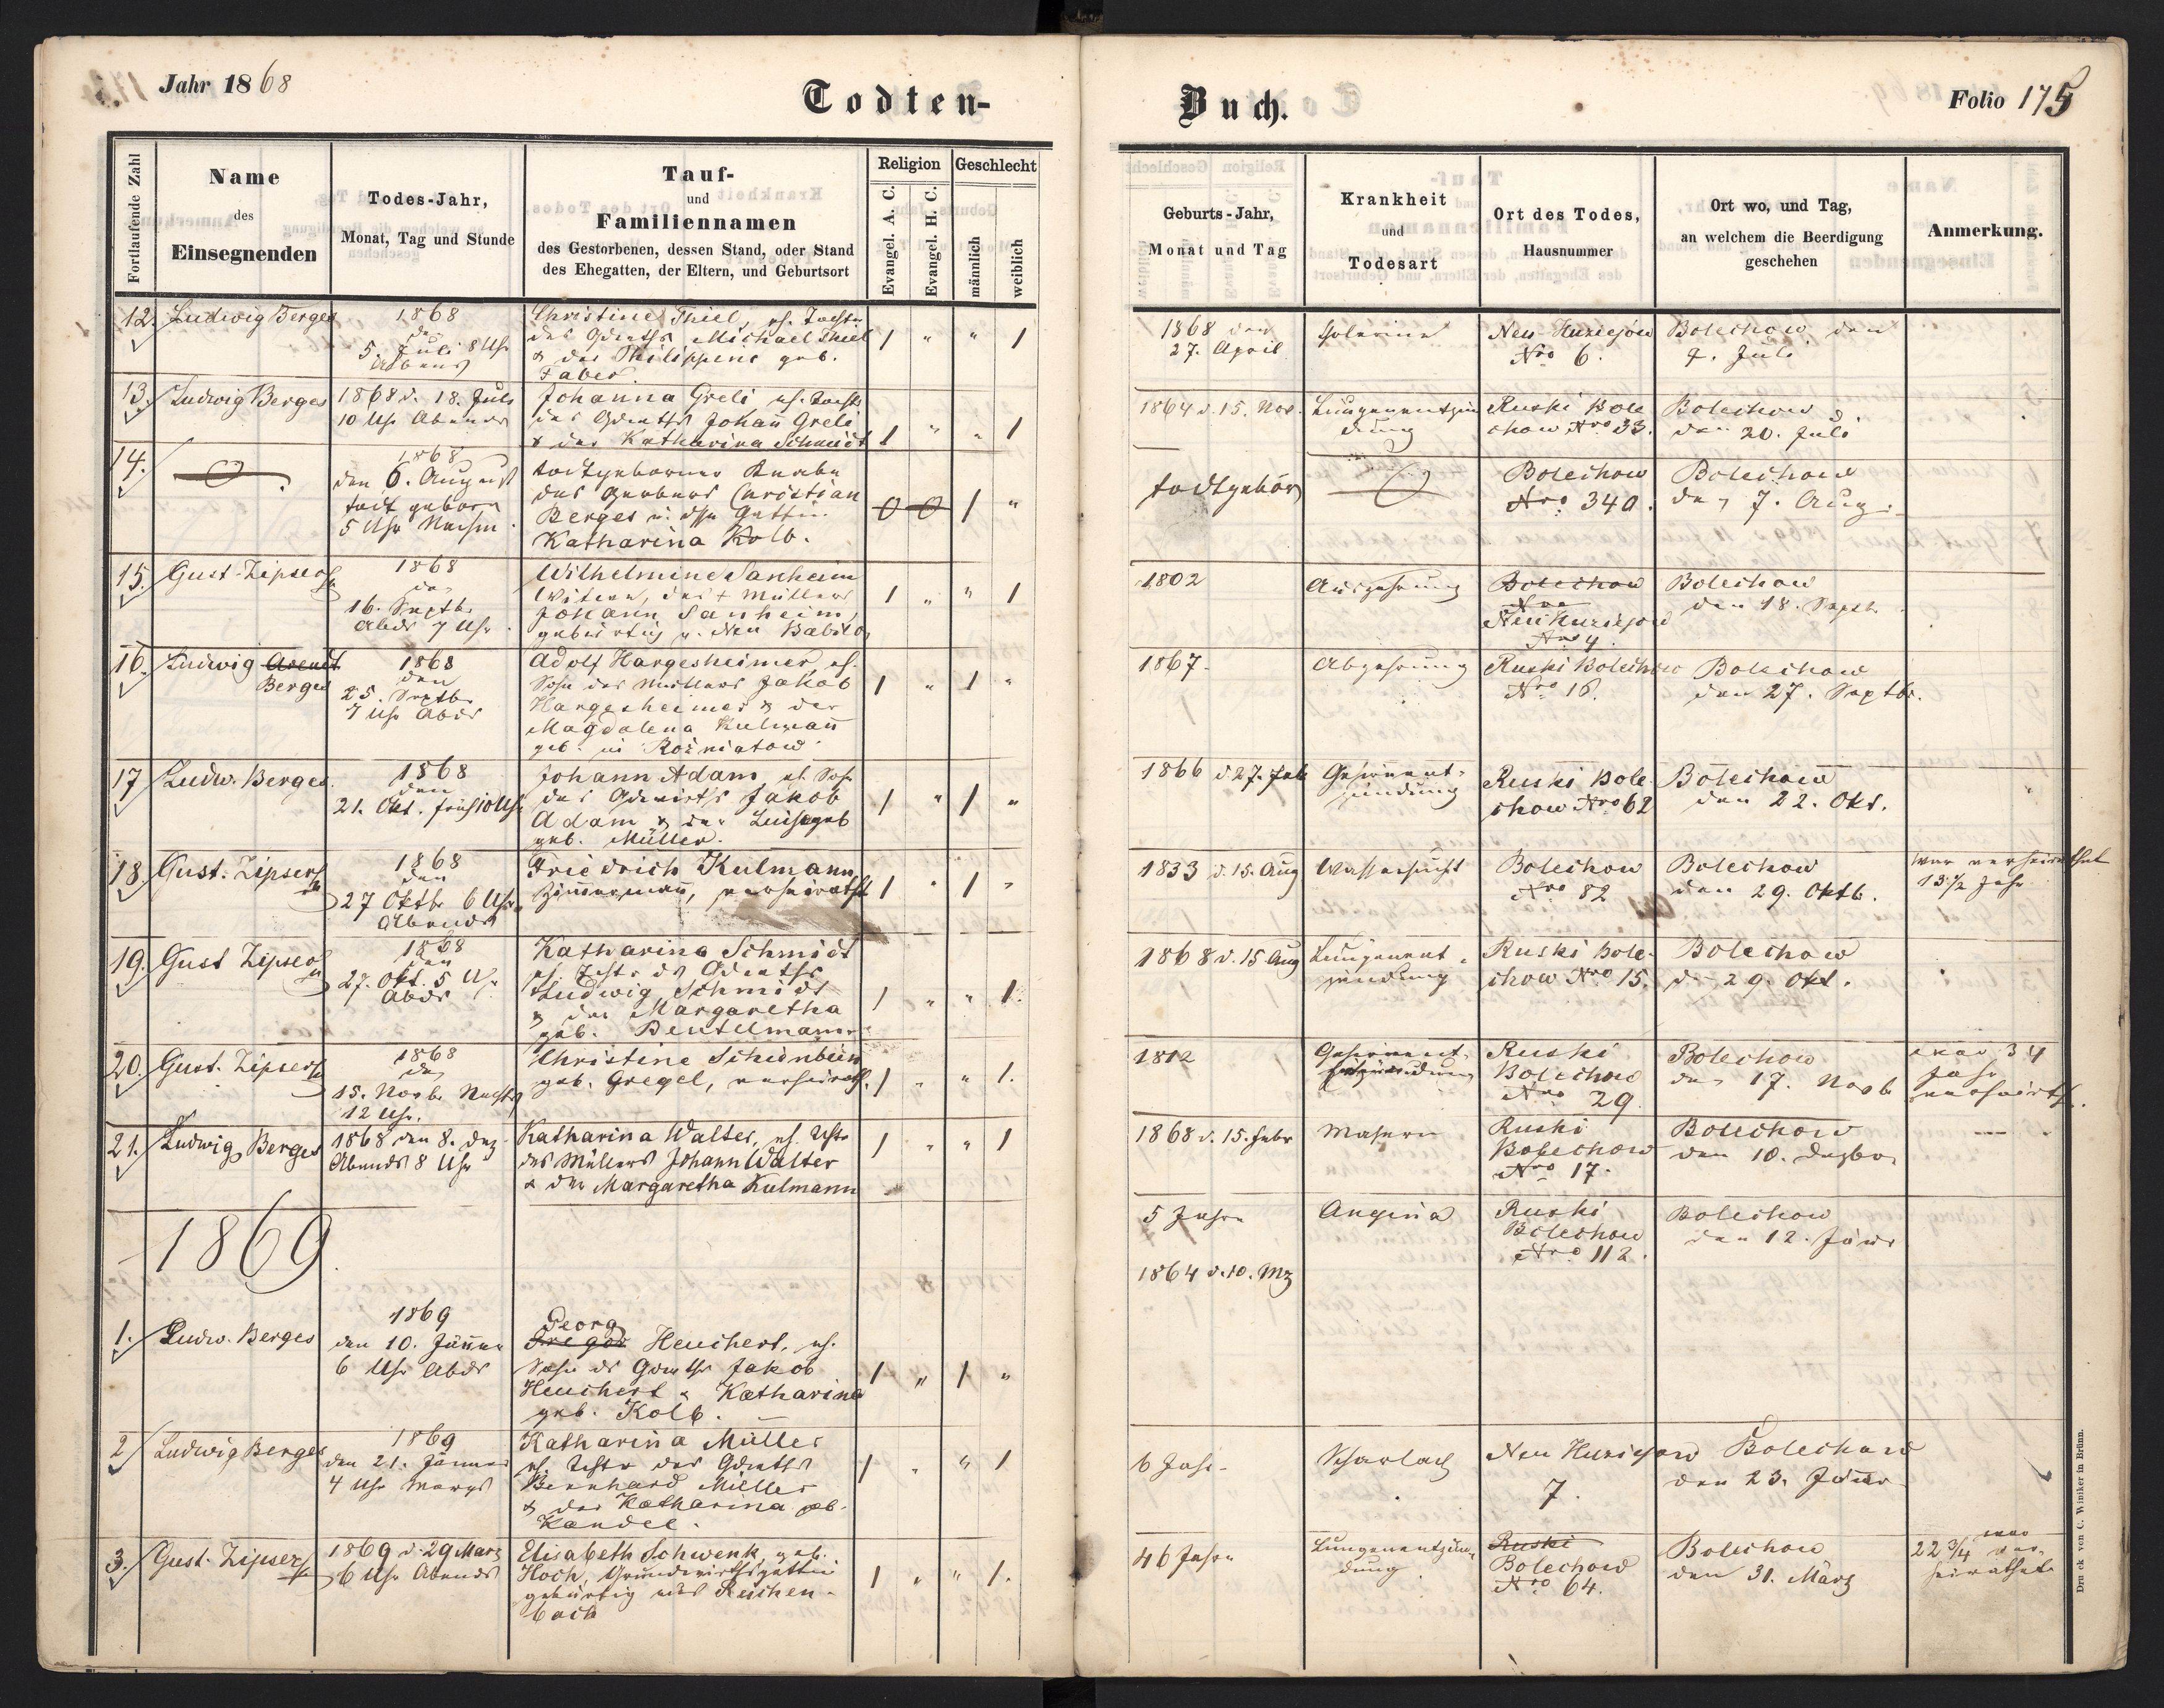 Jahr 1868
Todten-
Buch.
Folio 175
Fortlaufende Zahl
Name
des
Einsegnenden
Todes-Jahr,
Monat, Tag und Stunde
Tauf-
und
Familiennamen
des Gestorbenen, dessen Stand, oder Stand
des Ehegatten, der Eltern, und Geburtsort
Religion
Evangel. A. C.
Evangel. H. C.
Geschlecht
männlich
weiblich
Geburts-Jahr,
Monat und Tag
Krankheit
und
Todesart
Ort des Todes,
Hausnummer
Ort wo, und Tag,
an welchem die Beerdigung
geschehen
Anmerkung.
12. Ludwig Berges
1868
den
5. Juli 8 Uhr
Abends
Christine Thiel, eh. Tochter
des Michael Thiel
& der Philippine geb.
Faber.
1 " " 1
1868 den
27. April
Neu Huziejow
Nro 6.
Bolechow den
7. Juli
13. Ludwig Berges
1868 d. 18. Juli
10 Uhr Abends
Johanna Greli eh. Tocht.
des Johann Greli
& der Katharina Schmidt
1 " " 1
1864 d. 15. Nov.
Lungenentzün
dung
Ruski Bole
chow Nro 33.
Bolechow
den 20. Juli
14.
1868
den 6. August
todt geboren
5 Uhr Nachm.
todtgeborner Knabe
des Gerbers Christian
Berges u. dssn Gattin
Katharina Kolb.
0 0 1 "
todtgebor
Bolechow
Nro. 340.
Bolechow
den 7. Aug.
15. Gust. Zipser
1868
den
16. Septb.
Abds 7 Uhr.
Wilhelmine Sanheim
Witwe, des + Müllers
Johann Sanheim,
gebürtig v. Neu Babilo
1 " " 1
1802
Auszehrung
Bolechow
Nro
Neu Huziejow
Nro 4.
Bolechow
den 18. Septb.
16. Ludwig Arendt
Berges
1868
den
25. Septbr
7 Uhr Abds
Adolf Hargesheimer, eh.
Sohn des Müllers Jakob
Hargesheimer & der
Magdalena Kulmann
geb. in Rożniatow
1 " 1 "
1867.
Abzehrung
Ruski Bolechow
Nro 16.
Bolechow
den 27. Septbr.
17 Ludw. Berges.
1868
den
21. Okt. früh 10 Uhr
Johann Adam, eh. Sohn
des Jakob
Adam & der
geb. Müller.
1 " 1 "
1866 d 27. Feb
Gehirnent-
zündung
Ruski Bole
chow Nro 62
Bolechow
den 22. Okt.
18. Gust. Zipser
1868
den
27 Oktbr 6 Uhr
Abends
Friedrich Kulmann
Zimmermann, verheirathet
1 " 1 "
1833 d. 15. Aug
Wassersucht
Bolechow
Nro 82
Bolechow
den 29. Oktb.
war verheirathet
13 1/2 Jahr
19. Gust Zipser
1868
den
27. Okt. 5 U.
Abds
Katharina Schmidt
eh. Tocht. ds
Ludwig Schmidt
& der Margaretha
geb. Beutelmann
1 " " 1.
1868 d. 15 Aug
Lungenent-
zündung
Ruski Bole-
chow Nro 15.
Bolechow
den 29. Okt.
20. Gust. Zipser
1868
den
15. Novb. Nachts
12 Uhr.
Christine Schienbein
geb. Gregel, verheirath.
1 " " 1.
1812
Gehirnent-
zündung
Ruski
Bolechow
Nro 29
Bolechow
den 17. Novb
war 34
Jahr
verheirath.
21. Ludwig Berges
1868 den 8. Dez.
Abends 8 Uhr
Katharina Walter, eh. Tchtr
des Müllers Johann Walter
& der Margaretha Kulmann
1 " " 1
1868 d. 15. Febr
Masern
Ruski
Bolechow
Nro 17.
Bolechow
den 10. Dezbr
1869.
5 Jahre
Angina
Ruski
Bolechow
Nro 112.
Bolechow
den 12. Jänr
1864 d. 10. Mz
1. Ludw. Berges
1869
den 10. Jänner
6 Uhr Abds
Georg
Gregor Heuchert, eh.
Sohn ds Jakob
Heuchert & Katharina
geb. Kolb.
1 " 1 "
2 Ludwig Berges
1869
den 21. Jänner
4 Uhr Morgs
Katharina Müller
eh. Tchtr des
Bernhard Müller
& der Katharina geb.
Kandel.
1 " " 1
6 Jahr
Scharlach
Neu Huziejow
7.
Bolechow
den 23. Jänner
3. Gust. Zipser
1869 d. 29 März
6 Uhr Abends
Elisabeth Schwenk, geb.
Hoch, Grundwirthsgattin
gebürtig aus Reichen-
bach
1 " " 1.
46 Jahre
Lungenentzün-
dung
Ruski
Bolechow
Nro 64.
Bolechow
den 31. März
war
22 3/4 ver-
heirathet
Druck von C. Winiker in Brünn.